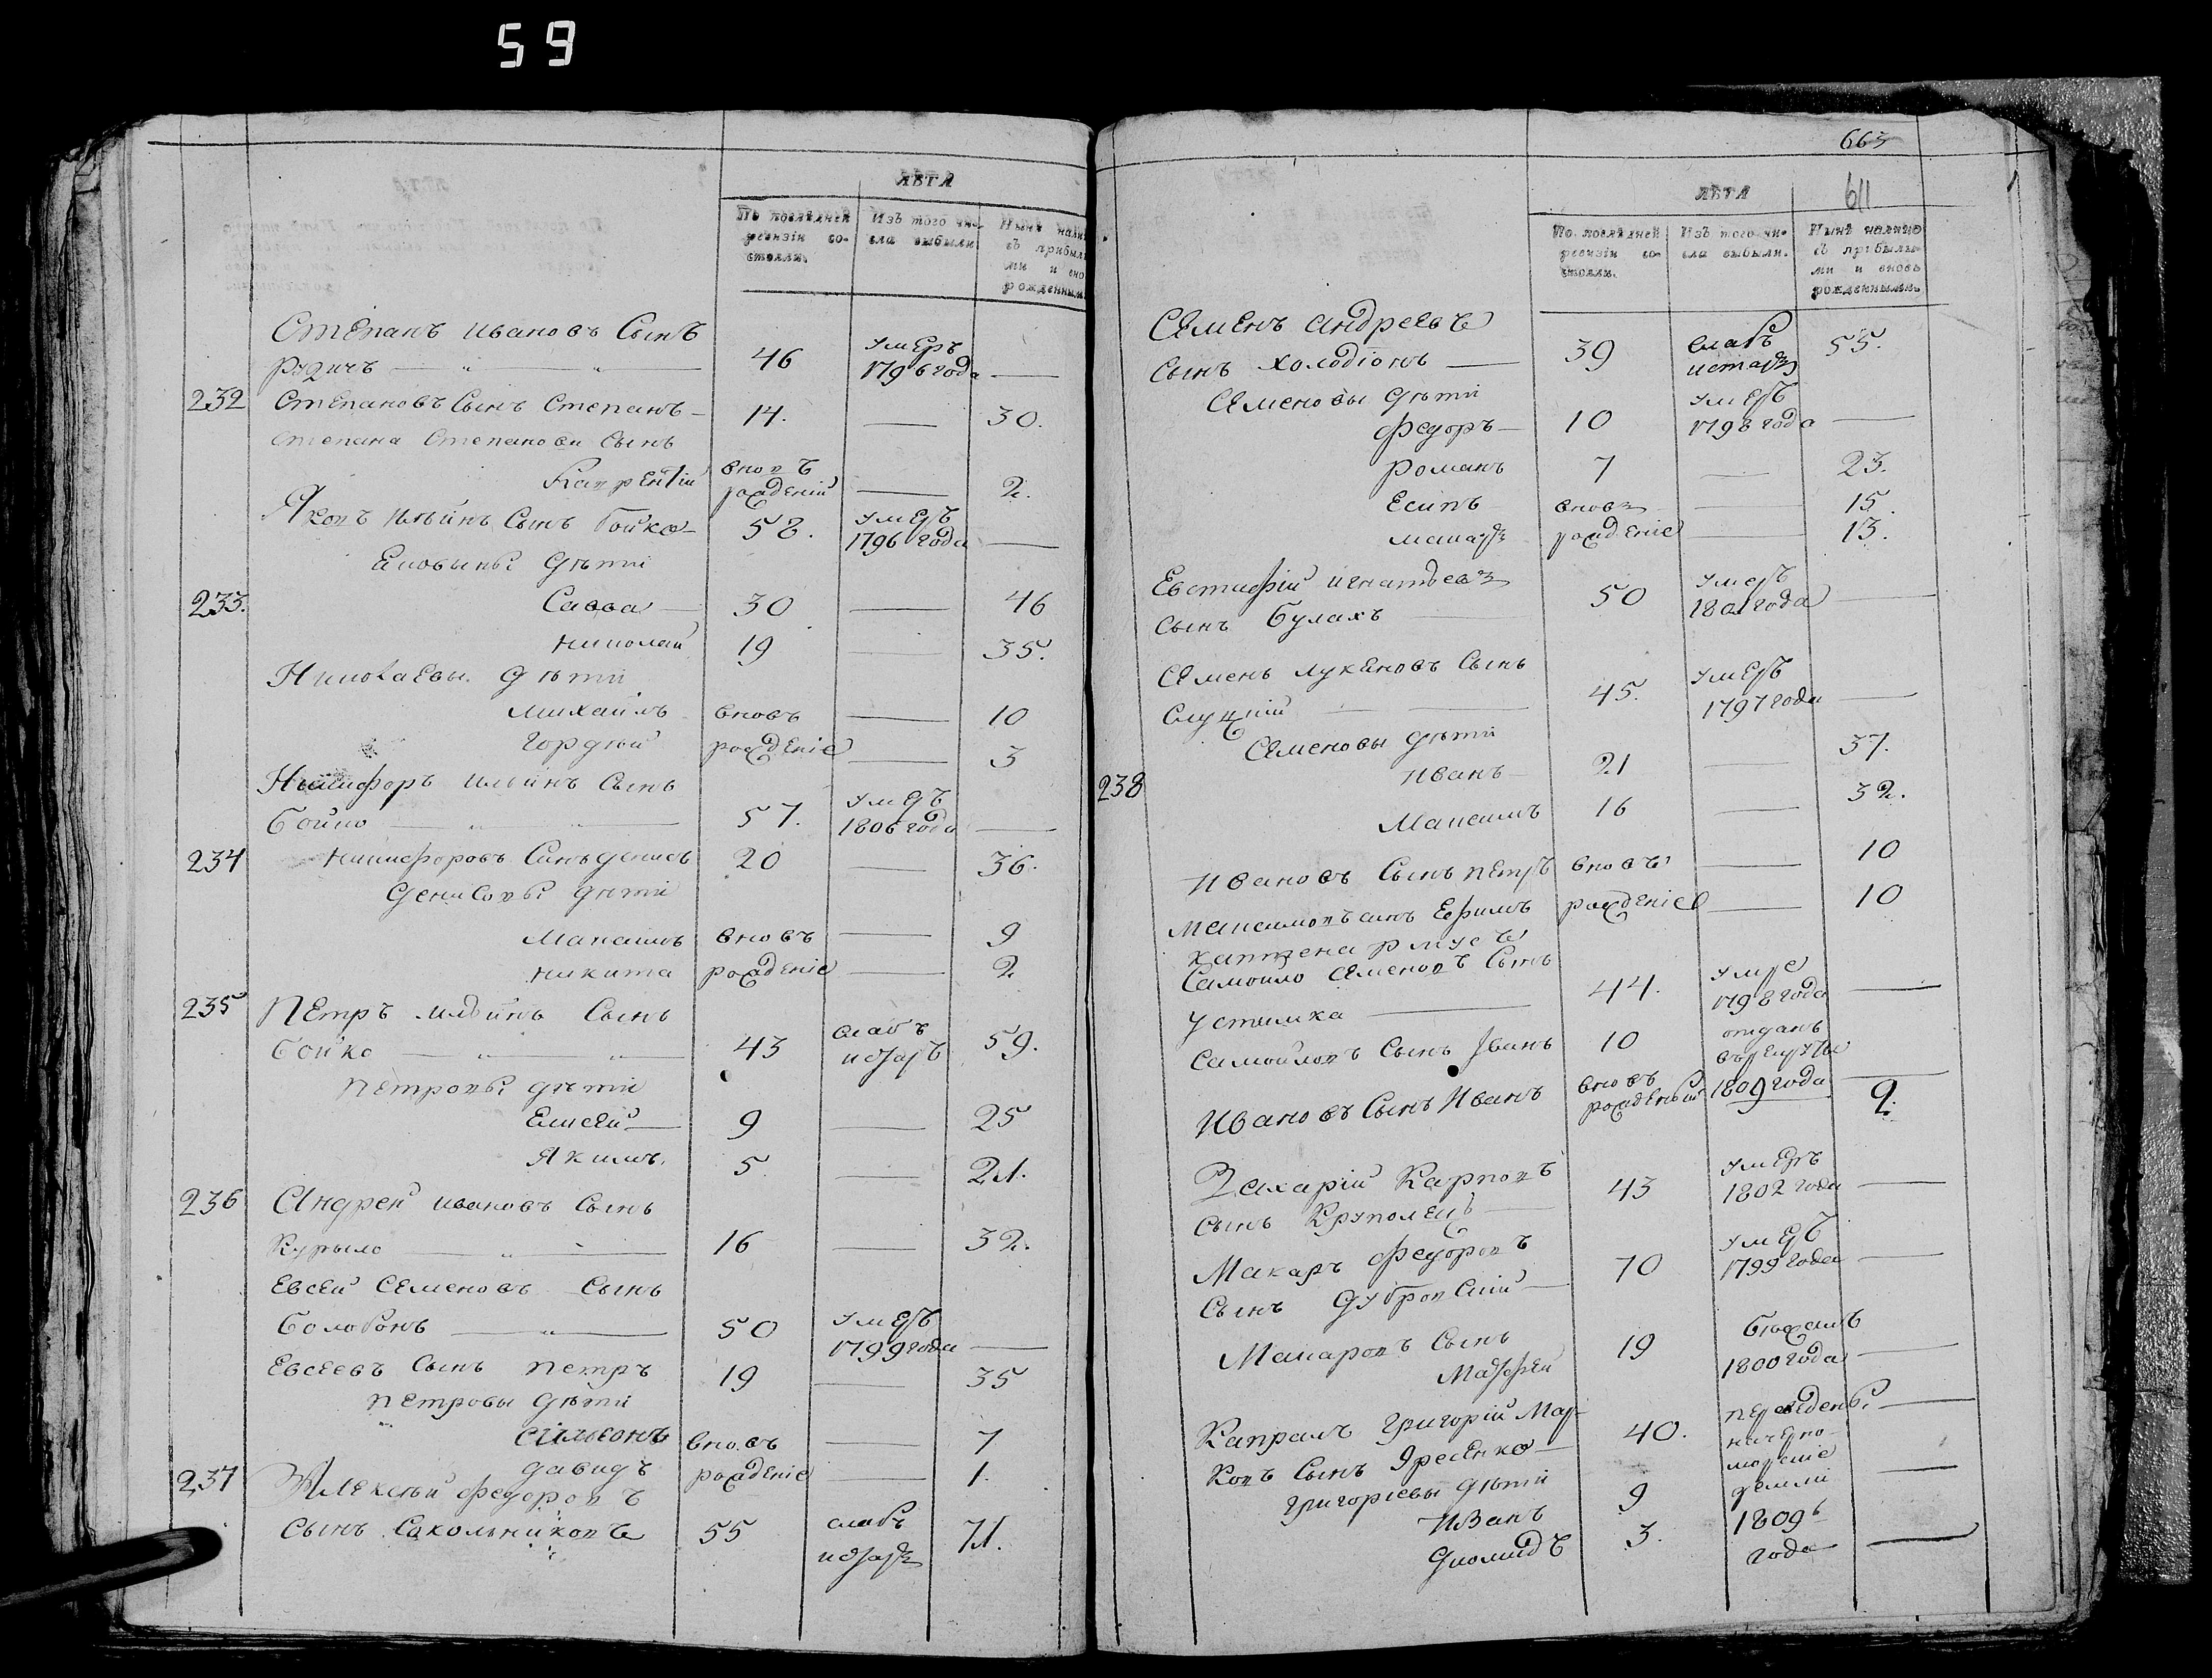 59
ЛѢТА
По послѣдней ревизіи состояли.
Изъ того числа выбыли
Нынѣ нали
съ прибылы
ми и вно
рожденными
Степанъ Ивановъ Сынъ
Рудичъ 46 умеръ 1796 года —
232 Степановъ Сынъ Степанъ 14. — 30.
Степана Степанова Сынъ
вновь рожденій — 2.
Яковъ Ильинъ Сынъ Бойко 58. умеръ 1796 года —
Яковыны дѣти
233. Савва 30 — 46
Николай 19 — 35.
Николаевы дѣти
Михаилъ вновь — 10
Гордѣй рожденіе — 3
Никифоръ Ильинъ Сынъ
Бойко 57. умеръ 1806 года —
234 Никифоровъ Сынъ Денисъ 20 — 36.
Денисовы дѣти
Максимъ вновъ — 9
Никита рожденіе — 2
235 Петръ Ильинъ Сынъ
Бойко 43 слабъ истаръ 59.
Петровы дѣти
Елисей 9 — 25
Якимъ 5 — 21.
236 Андрей Ивановъ Сынъ
Курыло 16 — 32.
Евсей Семеновъ Сынъ
Болобонъ 50 умеръ 1799 года —
Евсеевъ Сынъ Петръ 19 — 35
Петровы дѣти
Симеонъ вновъ — 7
Давидъ рожденіе — 1.
237 Алексѣй Федоровъ
Сынъ Сакольниковъ 55 слабъ истаръ 71.
663
611
ЛѢТА
По послѣдней ревизіи состояли.
Изъ того числа выбыли.
Нынѣ налицо съ прибылыми и вновь рожденными.
Семенъ Андреевъ
Сынъ Холодіонъ 39 слабъ истаръ 55.
Семеновы дѣти
Федоръ 10 умеръ 1798 года —
Романъ 7 — 23.
Есипъ вновъ — 15.
Макаръ рожденіе — 13.
Евстафій Игнатьевъ
Сынъ Булахъ 50 умеръ 1801 года —
Семенъ Лукяновъ Сынъ
Слуцкій 45. умеръ 1797 года —
Семеновы дѣти
238 Иванъ 21 — 37.
Максимъ 16 — 32.
Ивановъ Сынъ Петръ вновъ — 10
Максимовъ сынъ Ефимъ рожденіе — 10
Каптенармусъ
Самойло Семеновъ Сынъ
Устимка 44. умре 1798 года —
Самойловъ Сынъ Іванъ 10 отданъ въ рекруты 1809 года —
Ивановъ Сынъ Иванъ вновъ рожденый 2.
Захарій Карповъ
Сынъ Круполецъ 43 умеръ 1802 года —
Макаръ Федоровъ
Сынъ Дубровскій 70 умеръ 1799 года —
Макаровъ Сынъ
Матфей 19 бѣжалъ 1800 года —
Капралъ Григорій Мар-
ковъ Сынъ Яресенко 40. переведены —
Григоріевы дѣти на черноморскіе
Иванъ 9 земли —
Диомидъ 3. 1809ъ года —